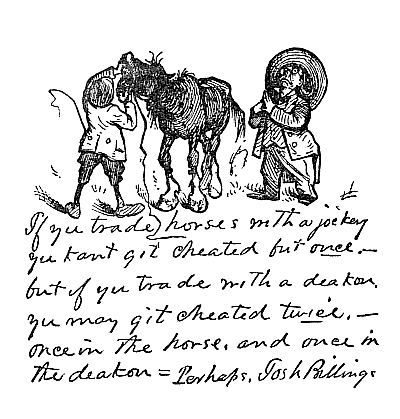 If yu trade horses with a jockey
yu kant git cheated but once.—
but if yu trade with a deakon,
yu may git cheated twice,—
once in the horse, and once in
the deakon = Perhaps, Josh Billings